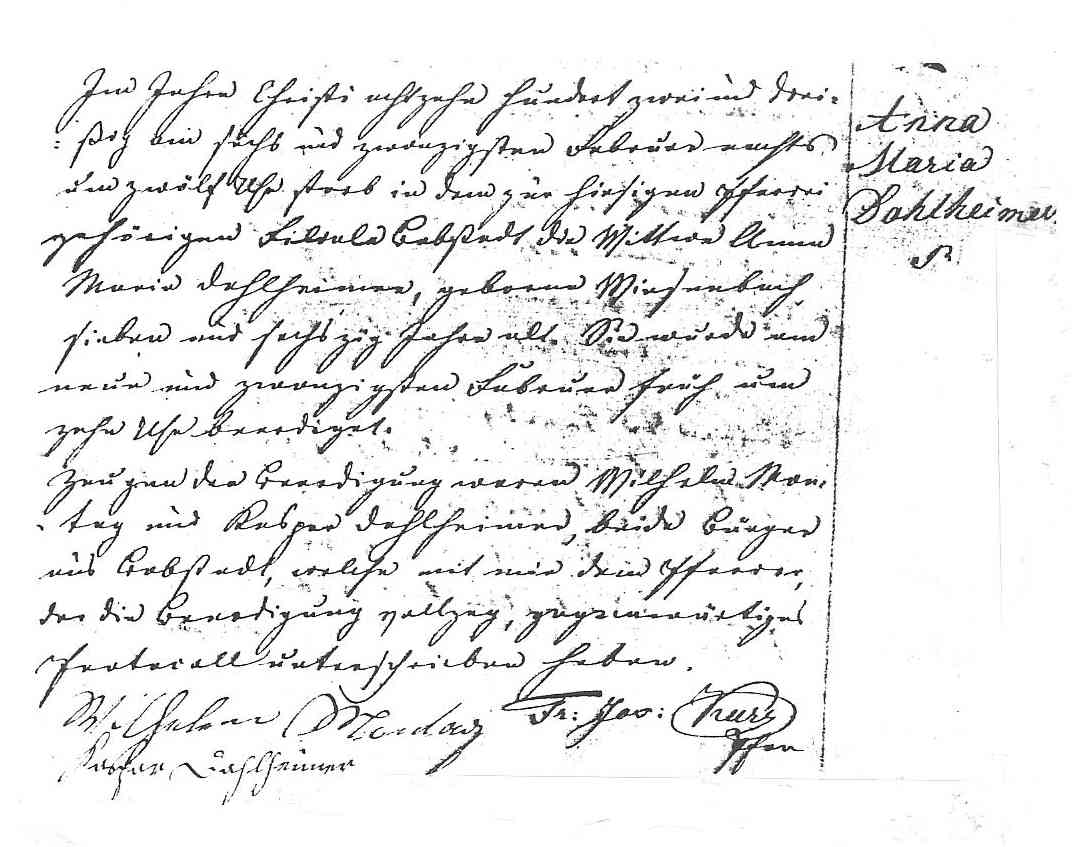 Im Jahre Christi achtzehn hundert zwei und drei-
: ßig am sechs und zwanzigsten Februar nachts
um zwölf Uhr starb in dem zur hiesigen Pfarrei
gehörigen Filiale Bobstadt die Wittwe Anna
Maria Dahlheimer, geborne Wiesenbach,
sieben und sechszig Jahre alt. Sie wurde am
neun und zwanzigsten Februar früh um
zehn Uhr beerdiget.
Zeugen der Beerdigung waren Wilhelm Mon-
tag und Kaspar Dahlheimer, beide Bürger
aus Bobstadt, welche mit mir dem Pfarrer,
der die Beerdigung vollzog, gegenwärtiges
Protocoll unterschrieben haben.
Wilhelm Mondag Fr: Jos: Kurz
Pfarr
Kaspar Dahlheimer
Anna
Maria
Dahlheimer